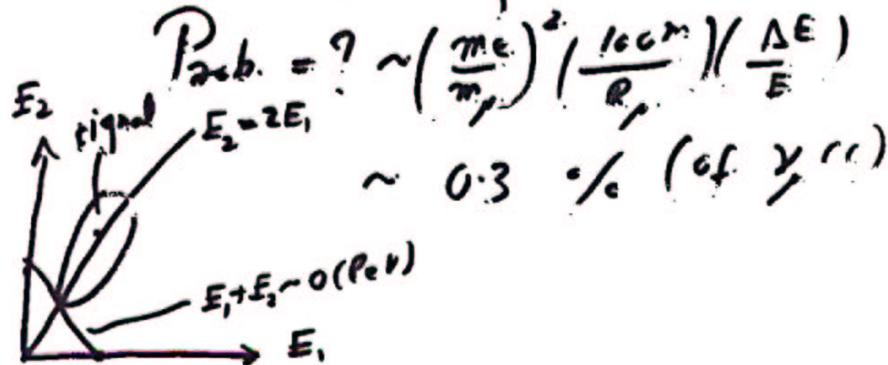 Prob. = ? ~ (me/mμ)² (100m/Rμ)(ΔE/E)
~ 0.3 % (of
E₂
signal
E₂=2E₁
E₁+E₂~O(PeV)
E₁